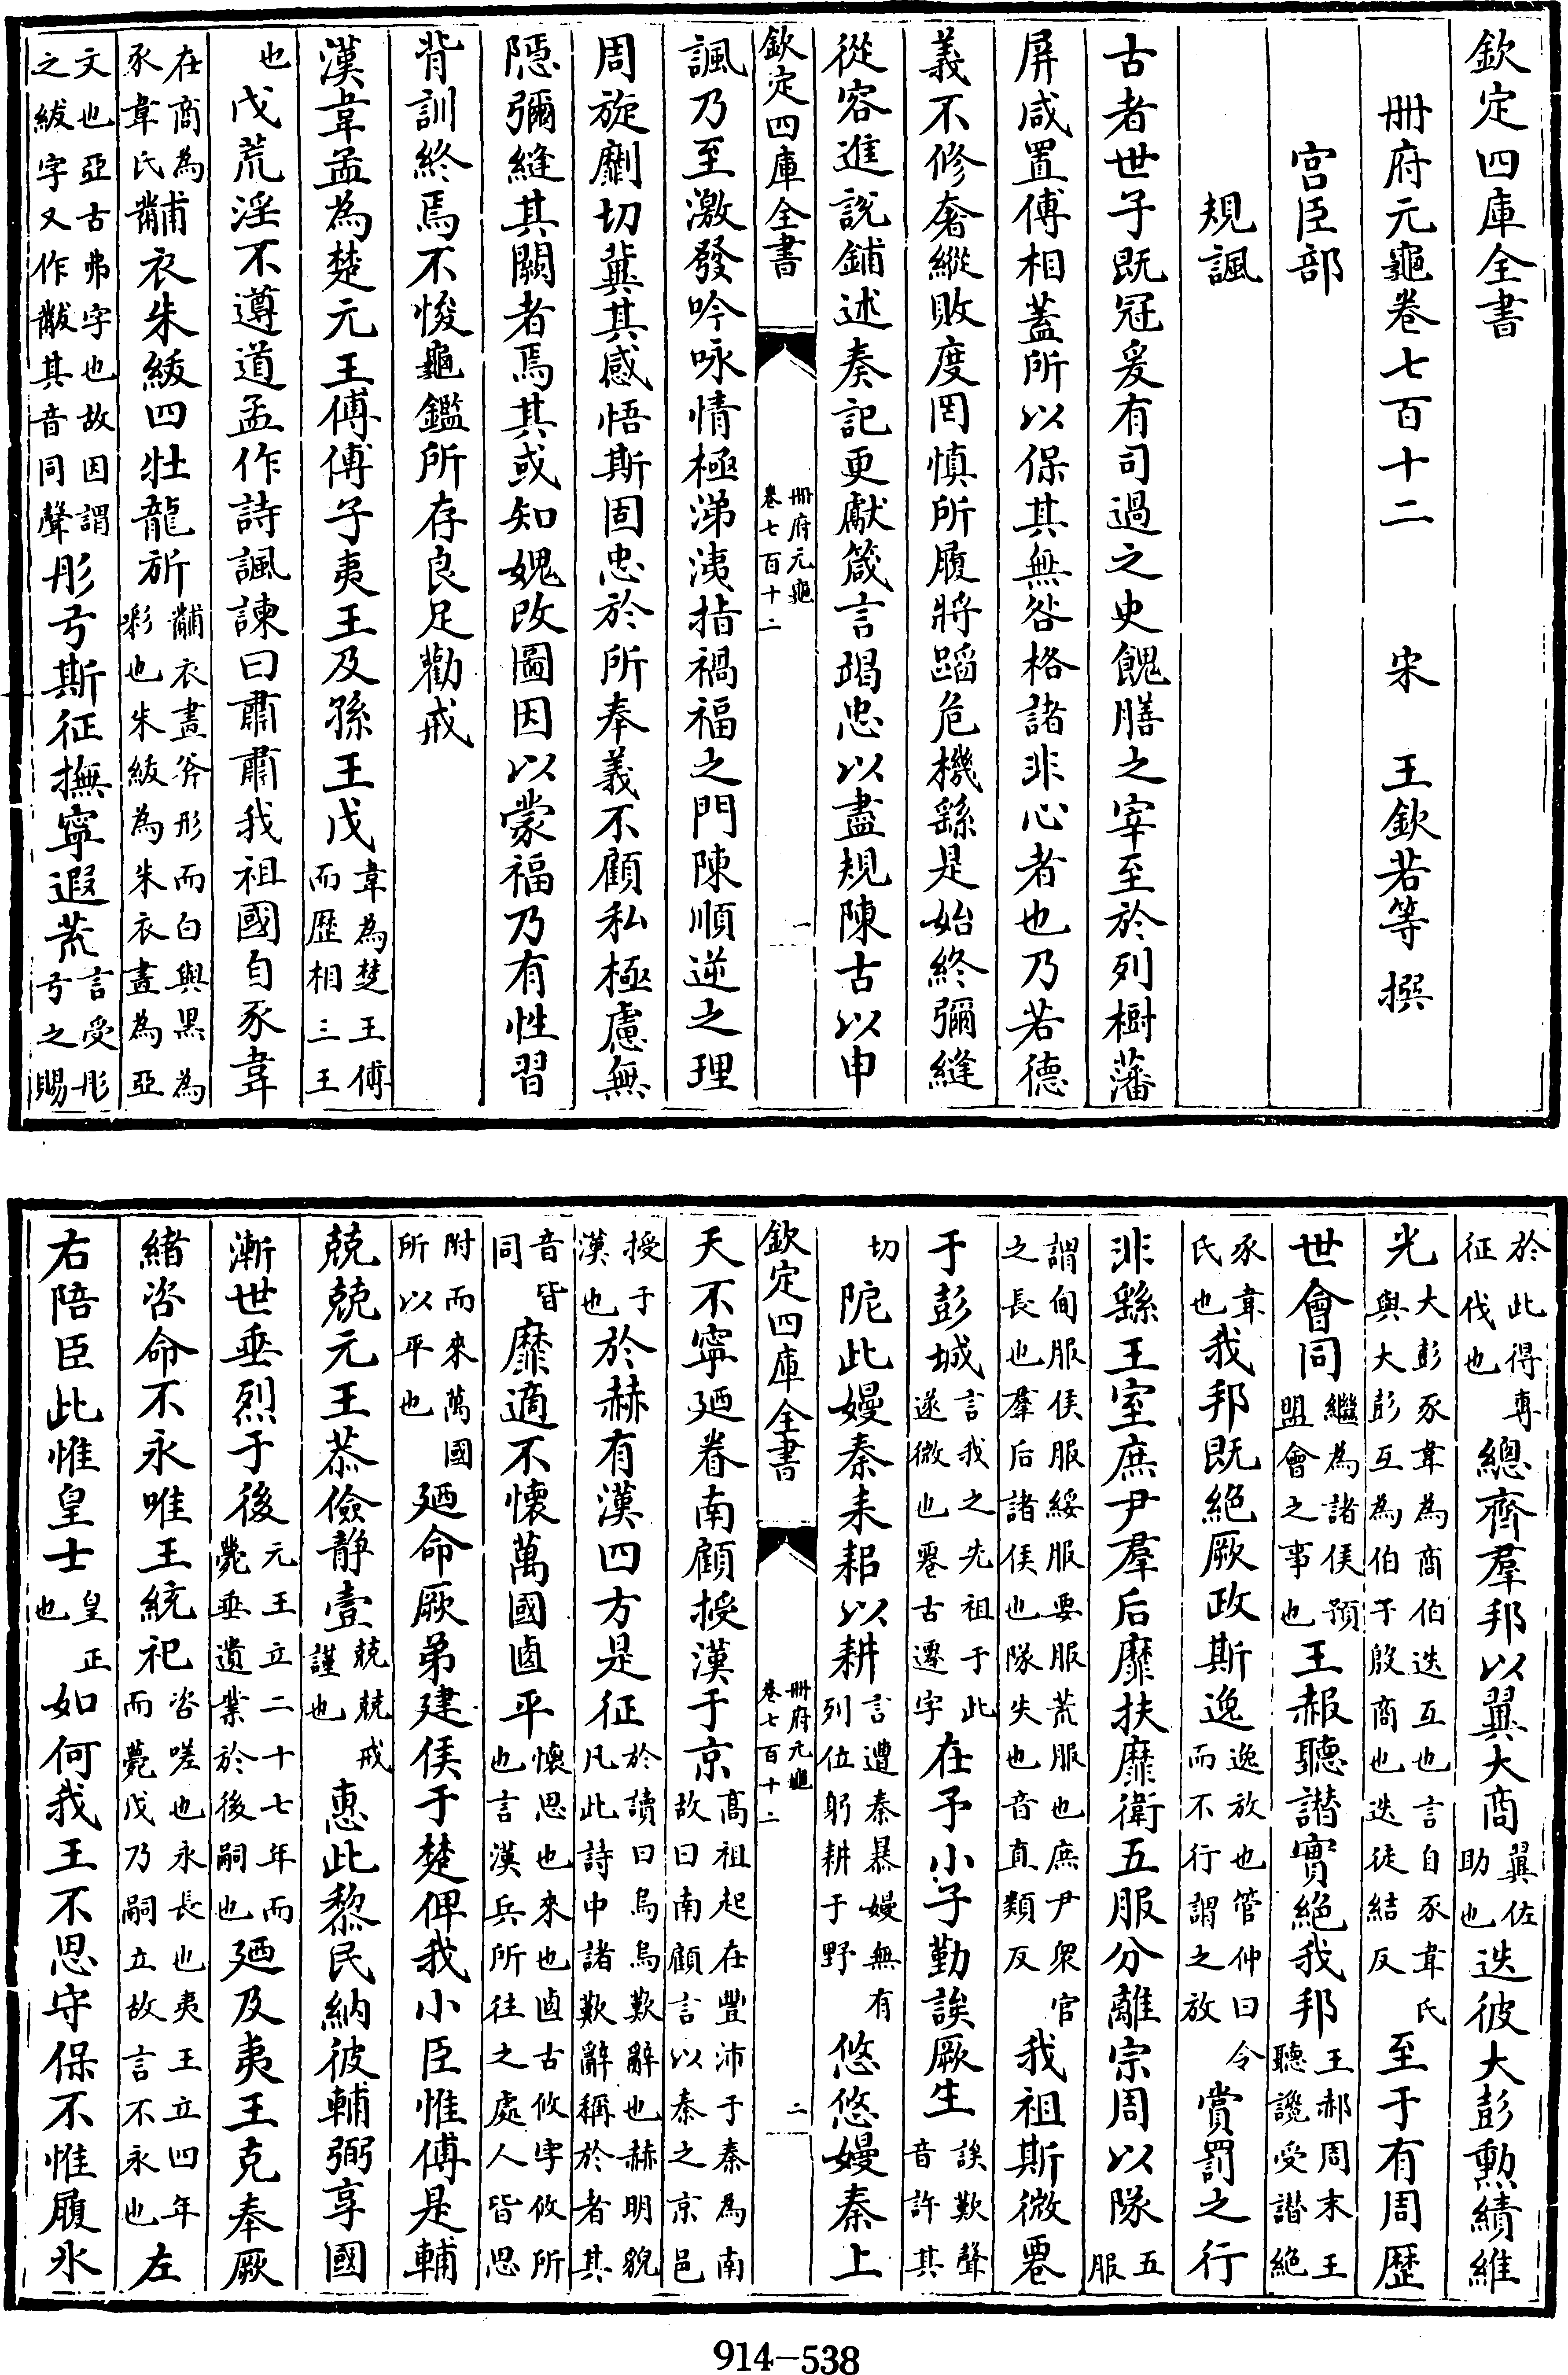 欽定四庫全書
冊府元龜卷七百十二　宋　王欽若等　撰
宫臣部
規諷
古者世子既冠爰有司過之史餽膳之宰至於列樹藩
屏咸置傅相蓋所以保其無咎格諸非心者也乃若德
義不修奢縱敗度罔慎所履將蹈危機繇是始終彌縫
從容進説鋪述奏記更獻箴言竭忠以盡規陳古以申
欽定四庫全書　冊府元龜　卷七百十二　一
諷乃至激發吟咏情極涕洟指禍福之門陳順逆之理
周旋劘切冀其感悟斯固忠於所奉義不顧私極慮無
隱彌縫其闕者焉其或知媿改圖因以蒙福乃有性習
背訓終焉不悛龜鑑所存良足勸戒
漢韋孟為楚元王傅傅子夷王及孫王戊韋為楚王傅而歴相三王
也戊荒淫不遵道孟作詩諷諫曰肅肅我祖國自豕韋
在商為豕韋氏黼衣朱紱四牡龍旂黼衣畫斧形而白與黑為彩也朱紱為朱衣畫為亞
文也亞古弗字也故因謂之紱字又作黻其音同聲彤弓斯征撫寧遐荒言受彤弓之賜
於此得專征伐也總齊羣邦以翼大商翼佐助也迭彼大彭勲績維
光大彭豕韋為商伯迭互也言自豕韋氏與大彭互為伯于殷商也迭徒結反至于有周歴
世會同繼為諸侯預盟會之事也王赧聽譖實絶我邦王赧周末王聽讒受譖絶
豕韋氏也我邦既絶厥政斯逸逸放也管仲曰令而不行謂之放賞罰之行
非繇王室庶尹羣后靡扶靡衛五服分離宗周以隊五服
謂甸服侯服綏服要服荒服也庶尹衆官之長也羣后諸侯也隊失也音直類反我祖斯微䙴
于彭城言我之先祖于此遂微也䙴古遷字在予小子勤誒厥生誒歎聲音許其
切阸此嫚秦耒耜以耕言遭秦暴嫚無有列位躬耕于野悠悠嫚秦上
欽定四庫全書　冊府元龜　卷七百十二　二
天不寧廼眷南顧授漢于京髙祖起在豐沛于秦為南故曰南顧言以秦之京邑
授于漢也於赫有漢四方是征於讀曰烏烏歎辭也赫明貌凡此詩中諸歎辭稱於者其
音皆同靡適不懷萬國卣平懷思也來也卣古攸字攸所也言漢兵所往之處人皆思
附而來萬國所以平也廼命厥弟建侯于楚俾我小臣惟傅是輔
兢兢元王恭儉靜壹兢兢戒謹也惠此黎民納彼輔弼享國
漸世垂烈于後元王立二十七年而薨垂遺業於後嗣也廼及夷王克奉厥
緒咨命不永唯王統祀咨嗟也永長也夷王立四年而薨戊乃嗣立故言不永也左
右陪臣此惟皇士皇正也如何我王不思守保不惟履氷
914-538